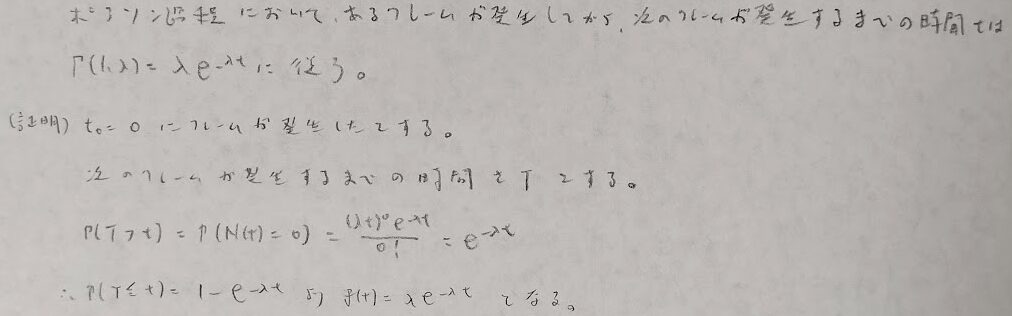 ポアソン過程において、あるフレームが発生してから、次のフレームが発生するまでの時間tは
Γ(1,λ) = λe^{-λt}に従う。
(証明) t₀=0にフレームが発生したとする。
次のフレームが発生するまでの時間をTとする。
P(T>t) = P(N(t)=0) = \frac{(λt)^0 e^{-λt}}{0!} = e^{-λt}
∴ P(T≤t) = 1 - e^{-λt} より f(t) = λe^{-λt} となる。